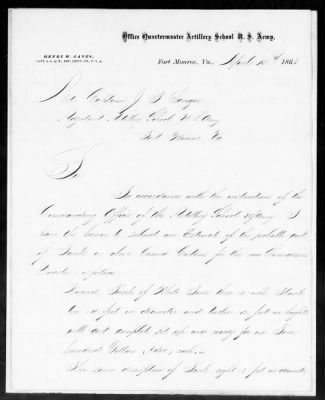 Office Quartermaster Artillery School U. S. Army,
HENRY W. JANES,
CAPT. A. Q. M., BVT. LIEUT. COL., U. S. A.
Fort Monroe, Va., April 13th 186
J. P. Sanger
Adjutant Artillery School U S Army
Fort Monroe Va
Sir
In accordance with the instructions of the
Commanding Officer of the Artillery School U S Army I
have the honor to submit an Estimate of the probable cost
of Tanks or above Ground Cisterns for the new
Round Tank of White Pine three inch Plank
ten feet in diameter and feet in height
will cost complete set up and ready for use Four
hundred Dollars each
The same description of Tank eight feet in diameter